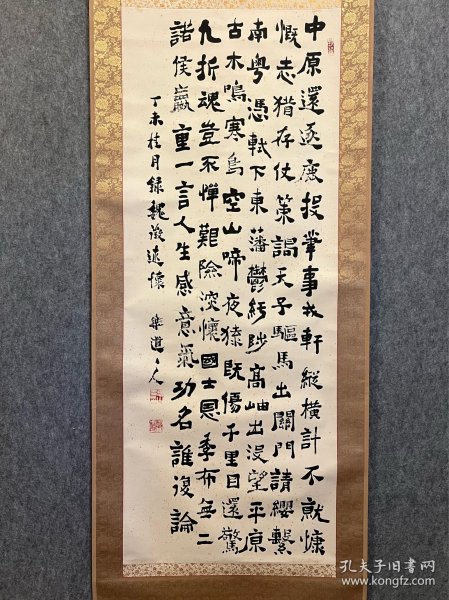 中原還逐鹿投筆事戎軒縱橫計不就慷
慨志猶存仗策謁天子驅馬出關門請纓繫
南粵憑軾下東藩鬱紆陟高岫出沒望平原
古木鳴寒鳥空山啼夜猿既傷千里目還驚
九折魂豈不憚艱險深懷國士恩季布無二
諾侯嬴重一言人生感意氣功名誰復論
丁未桂月錄魏徵述懷 樂道々人
孔夫子旧书网
www.kongfz.com